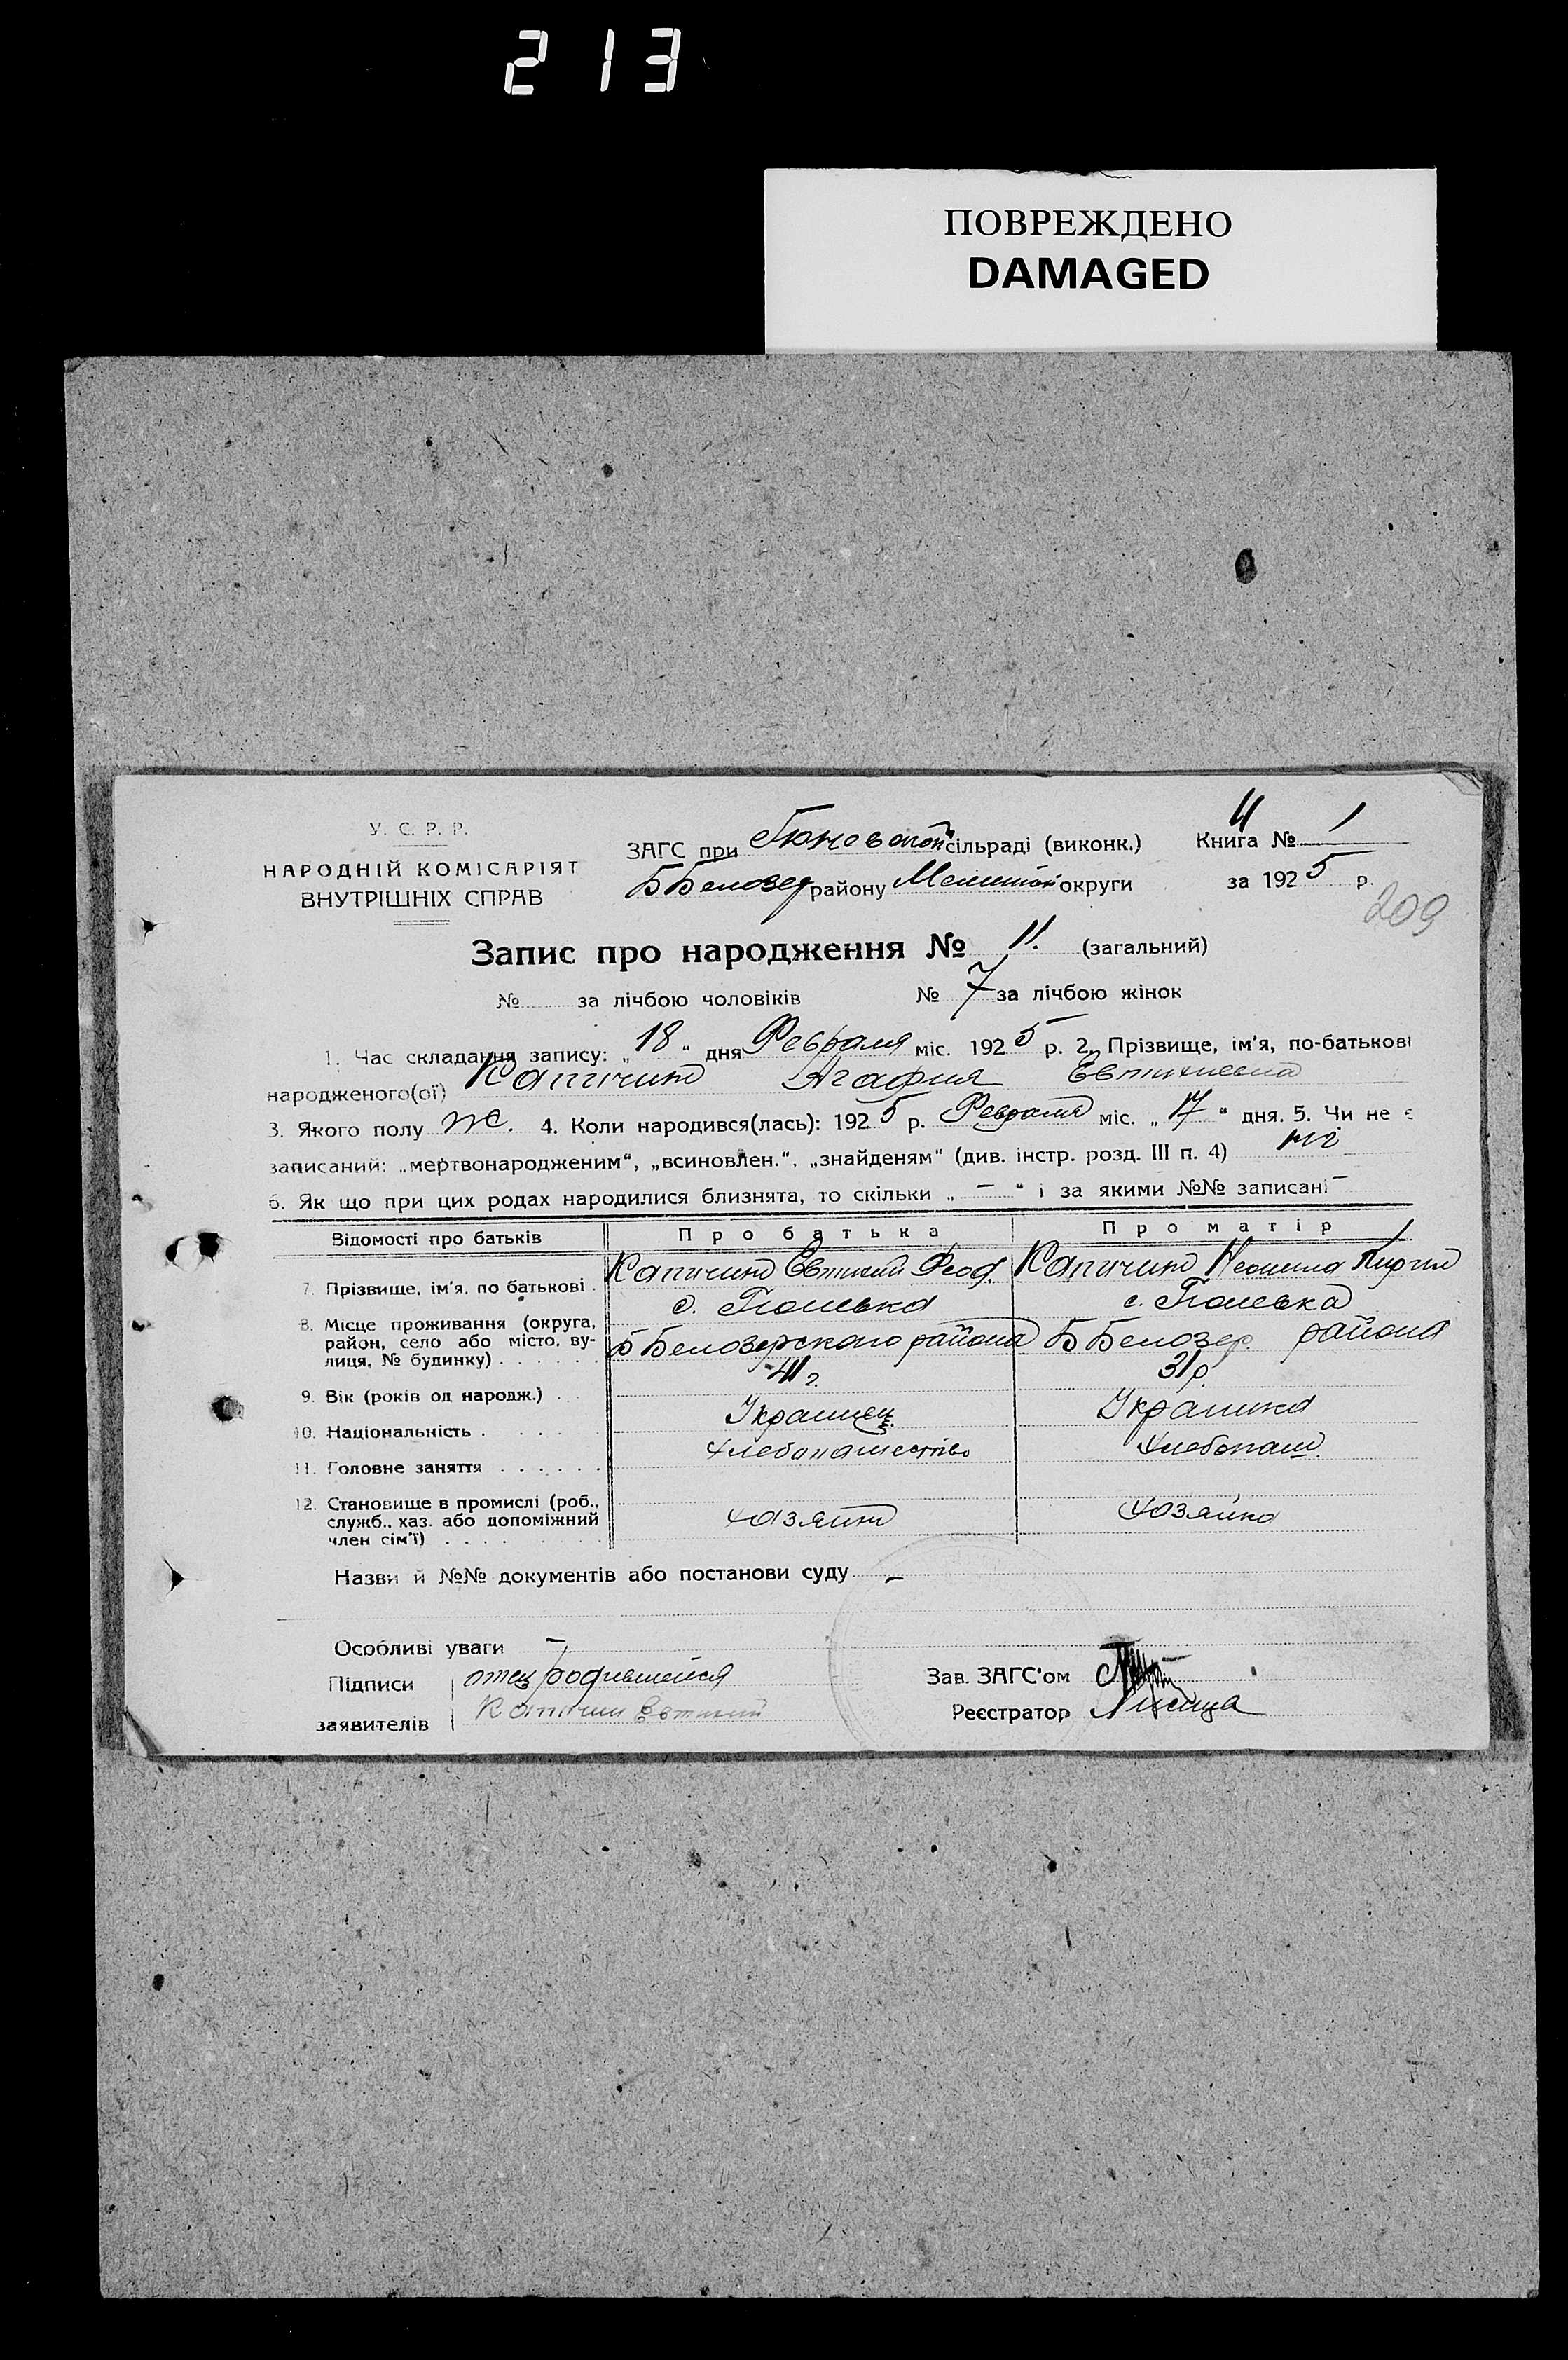 213
ПОВРЕЖДЕНО
DAMAGED
У. С. Р. Р.
НАРОДНІЙ КОМІСАРІЯТ
ВНУТРІШНІХ СПРАВ
ЗАГС при сільраді (виконк.)
ББелозер району округи
Книга № 1
за 1925 р.
209
Запис про народження № 11. (загальний)
№ за лічбою чоловіків № 7 за лічбою жінок
1. Час складання запису: „18“ дня Февраля міс. 1925 р. 2. Прізвище, ім'я, по-батькові
народженого(ої) Капичин Агафия Евтихиевна
3. Якого полу ж. 4. Коли народився(лась): 1925 р. Февраля міс. „17“ дня. 5. Чи не є
записаний: „мертвонародженим“, „всиновлен.“, „знайденям“ (див. інстр. розд. III п. 4) ні
6. Як що при цих родах народилися близнята, то скільки „–“ і за якими №№ записані –
Відомості про батьків Про батька Про матір
7. Прізвище, ім'я, по батькові . Капичин Евтихий Феод. Капичин Кирил
8. Місце проживання (округа, район, село або місто, вулиця, № будинку) . . . . . .
с. с.
Б Белозерского района Б Белозер. района
9. Вік (років од народж.) . . 41 г. 31 р
10. Національність . . . . . Украинец. Украинка
11. Головне заняття . . . . . . хлебопашество хлебопаш.
12. Становище в промислі (роб., служб., хаз. або допоміжний член сім'ї) . . . .
хозяин хозяйка
Назви й №№ документів або постанови суду –
Особливі уваги –
Підписи отец родившейся
заявителів Капичин Евтихий
Зав. ЗАГС'ом
Реєстратор Лисица